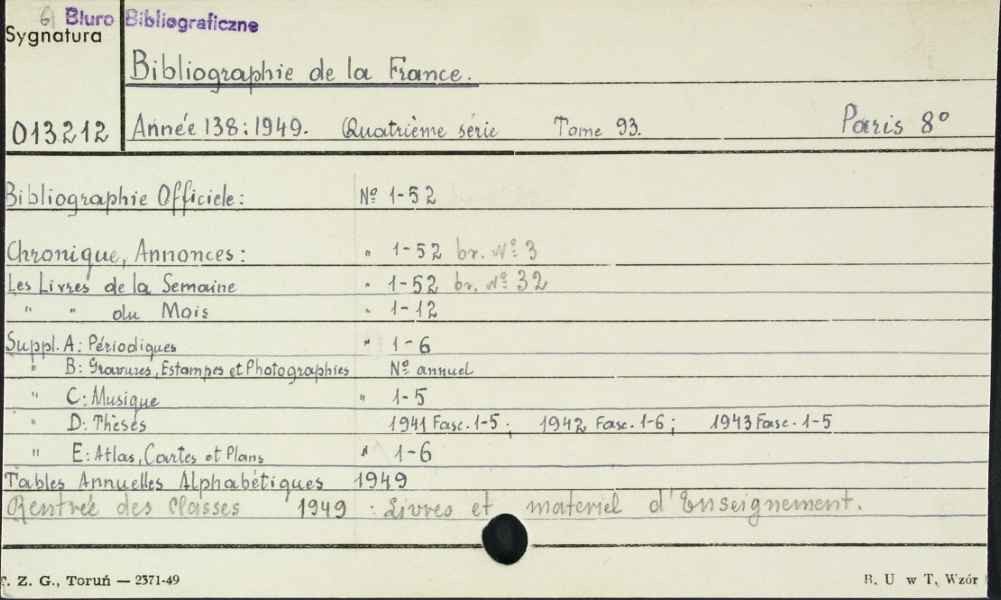 6) Biuro Bibliograficzne
Sygnatura
Bibliographie de la France.
013212 Année 138:1949. Quatrième série Tome 93. Paris 8°
Bibliographie Officiele: Nº 1-52
Chronique, Annonces: " 1-52 br. Nº 3
Les Livres de la Semaine " 1-52 br. Nº 32
" " du Mois " 1-12
Suppl. A: Périodiques " 1-6
" B: Gravures, Estampes et Photographies Nº annuel
" C: Musique " 1-5
" D: Thèses 1941 Fasc. 1-5; 1942 Fasc. 1-6; 1943 Fasc. 1-5
" E: Atlas, Cartes et Plans " 1-6
Tables Annuelles Alphabétiques 1949
Rentrée des Classes 1949 : Livres et materiel d'Enseignement.
. Z. G., Toruń — 2371-49 B. U w T, Wzór